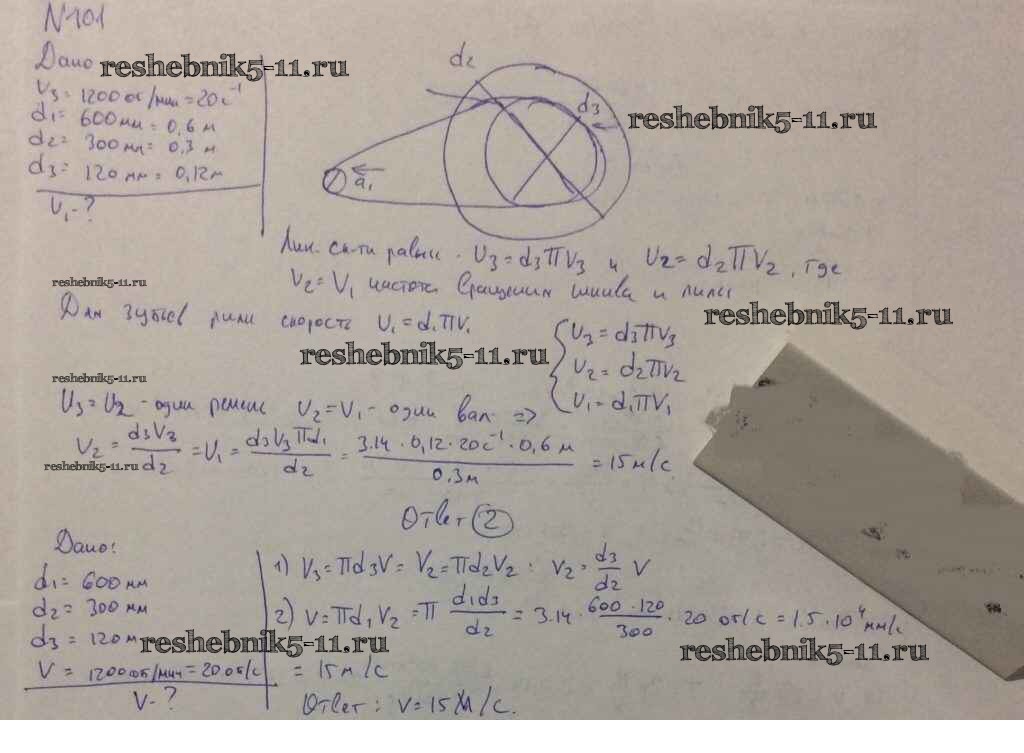 N101
Дано
reshebnik5-11.ru
ν3 = 1200 об/мин = 20 с⁻¹
d1 = 600 мм = 0,6 м
d2 = 300 мм = 0,3 м
d3 = 120 мм = 0,12 м
υ1 - ?
d2
d3
reshebnik5-11.ru
a1
Лин. ск-ти равны. υ3 = d3πν3 и υ2 = d2πν2, где
reshebnik5-11.ru
ν2 = ν1 частота вращения шкива и пилы
Для зубьев пилы скорость υ1 = d1πν1
reshebnik5-11.ru
reshebnik5-11.ru
{ υ3 = d3πν3
υ2 = d2πν2
υ1 = d1πν1
reshebnik5-11.ru
υ3 = υ2 - один ремень ν2 = ν1 - один вал =>
ν2 = d3ν3/d2 = υ1 = d3ν3πd1/d2 = 3.14 · 0,12 · 20 с⁻¹ · 0,6 м / 0,3 м = 15 м/с.
reshebnik5-11.ru
Ответ 2
Дано:
d1 = 600 мм
d2 = 300 мм
d3 = 120 м
reshebnik5-11.ru
V = 1200 об/мин = 20 об/с
V - ?
1) V3 = πd3V = V2 = πd2V2 : V2 = d3/d2 V
2) V = πd1V2 = π d1d3/d2 = 3.14 · 600 · 120/300 · 20 об/с = 1.5 · 10⁴ мм/с
reshebnik5-11.ru
= 15 м/с
Ответ: V = 15 м/с.